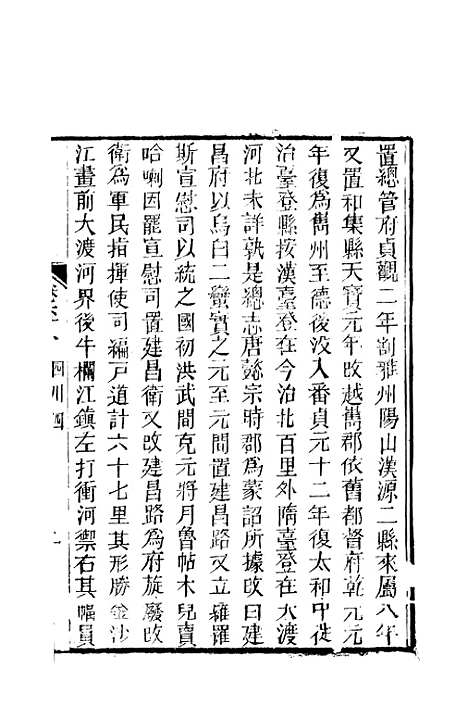 置總管府貞觀二年割雅州陽山漢源二縣來屬八年
又置和集縣天寶元年改越嶲郡依舊都督府乾元元
年復為嶲州至德後没入番貞元十二年復太和中徙
治臺登縣按漢臺登在今治北百里外隋臺登在大渡
河北未詳孰是總志唐懿宗時郡為蒙詔所據改曰建
昌府以烏白二蠻實之元至元間置建昌路又立羅羅
斯宣慰司以統之國初洪武間克元將月魯帖木兒賣
哈喇因罷宣慰司置建昌衛又改建昌路為府旋廢改
衛為軍民指揮使司編戸道計六十七里其形勝金沙
江畫前大渡河界後牛欄江鎮左打衝河禦右其幅員
四川四